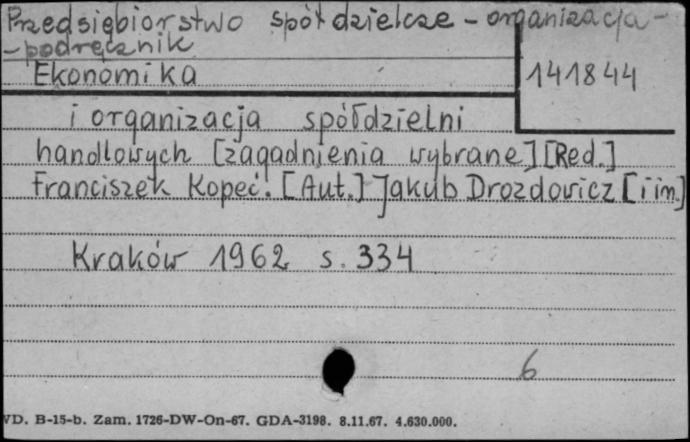 Przedsiębiorstwo spółdzielcze - organizacja -
- podręcznik
Ekonomika
141844
i organizacja spółdzielni
handlowych [zagadnienia wybrane] [Red.]
Franciszek Kopeć. [Aut.] Jakub Drozdowicz [i in.]
Kraków 1962 s. 334
6
VD. B-15-b. Zam. 1726-DW-On-67. GDA-3198. 8.11.67. 4.630.000.